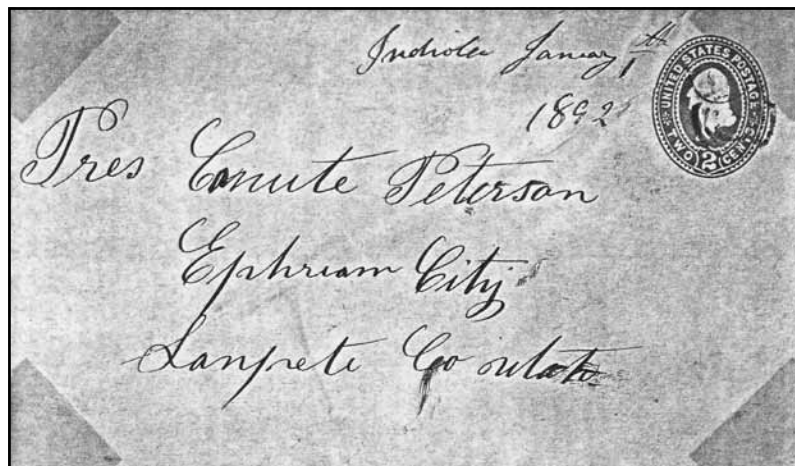 Indiola January 1th
1892
UNITED STATES POSTAGE
TWO 2 CENTS
Pres Canute Peterson
Ephriam City
Sanpete Co utah